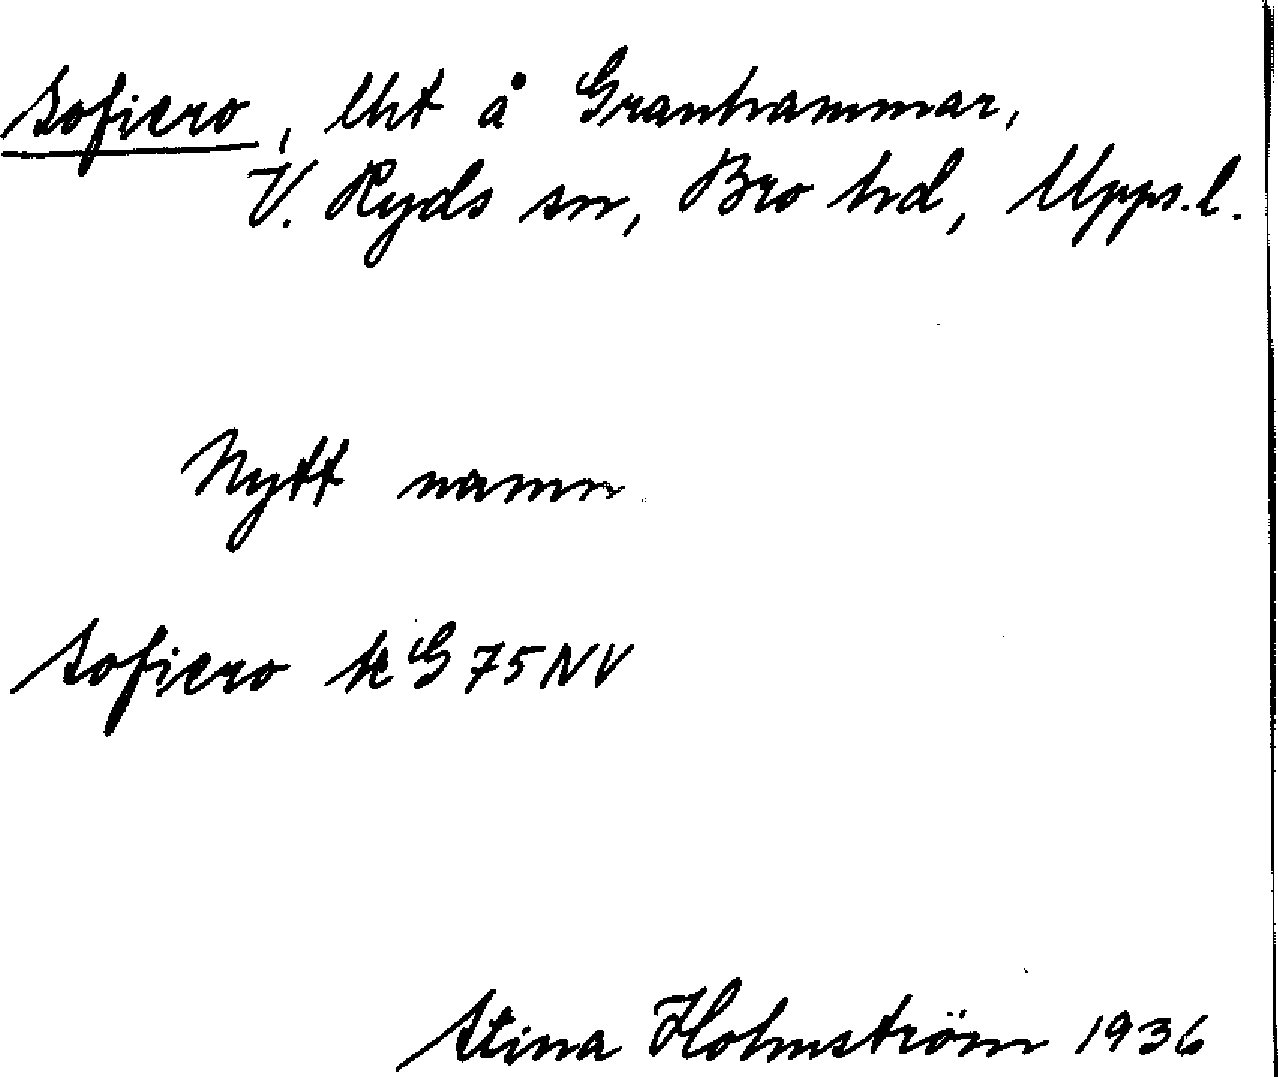 Sofiero, lht å Granhammar,
V. Ryds sn, Bro hd, Uppl.
Nytt namn
Sofiero k G 75 NV
Stina Holmström 1936